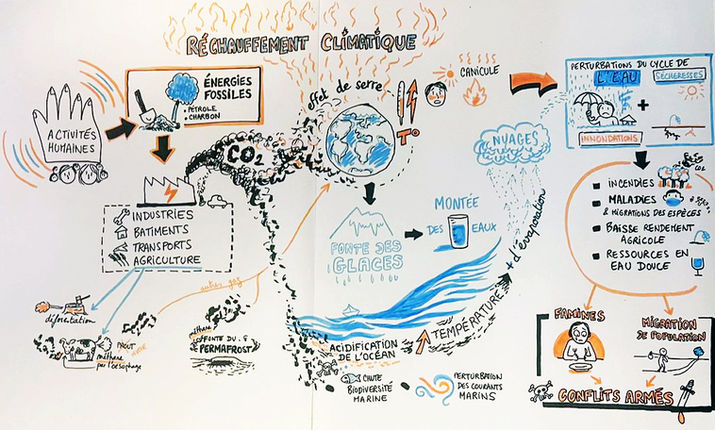 RÉCHAUFFEMENT CLIMATIQUE
ACTIVITÉS
HUMAINES
ÉNERGIES
FOSSILES
• PÉTROLE
• CHARBON
CO2
INDUSTRIES
BATIMENTS
TRANSPORTS
AGRICULTURE
déforestation
PROUT
méthane
par l'oesophage
autres gaz
méthane
FONTE DU
PERMAFROST
effet de serre
T°
CANICULE
FONTE DES
GLACES
MONTÉE
DES EAUX
NUAGES
+ d'évaporation
TEMPÉRATURE
ACIDIFICATION
DE L'OCÉAN
CHUTE
BIODIVERSITÉ
MARINE
PERTURBATION
DES COURANTS
MARINS
PERTURBATIONS DU CYCLE DE
L'EAU
SÉCHERESSES
+
INNONDATIONS
INCENDIES
MALADIES
& MIGRATIONS DES ESPÈCES
BAISSE RENDEMENT
AGRICOLE
RESSOURCES EN
EAU DOUCE
FAMINES
MIGRATION
DE POPULATION
CONFLITS ARMÉS